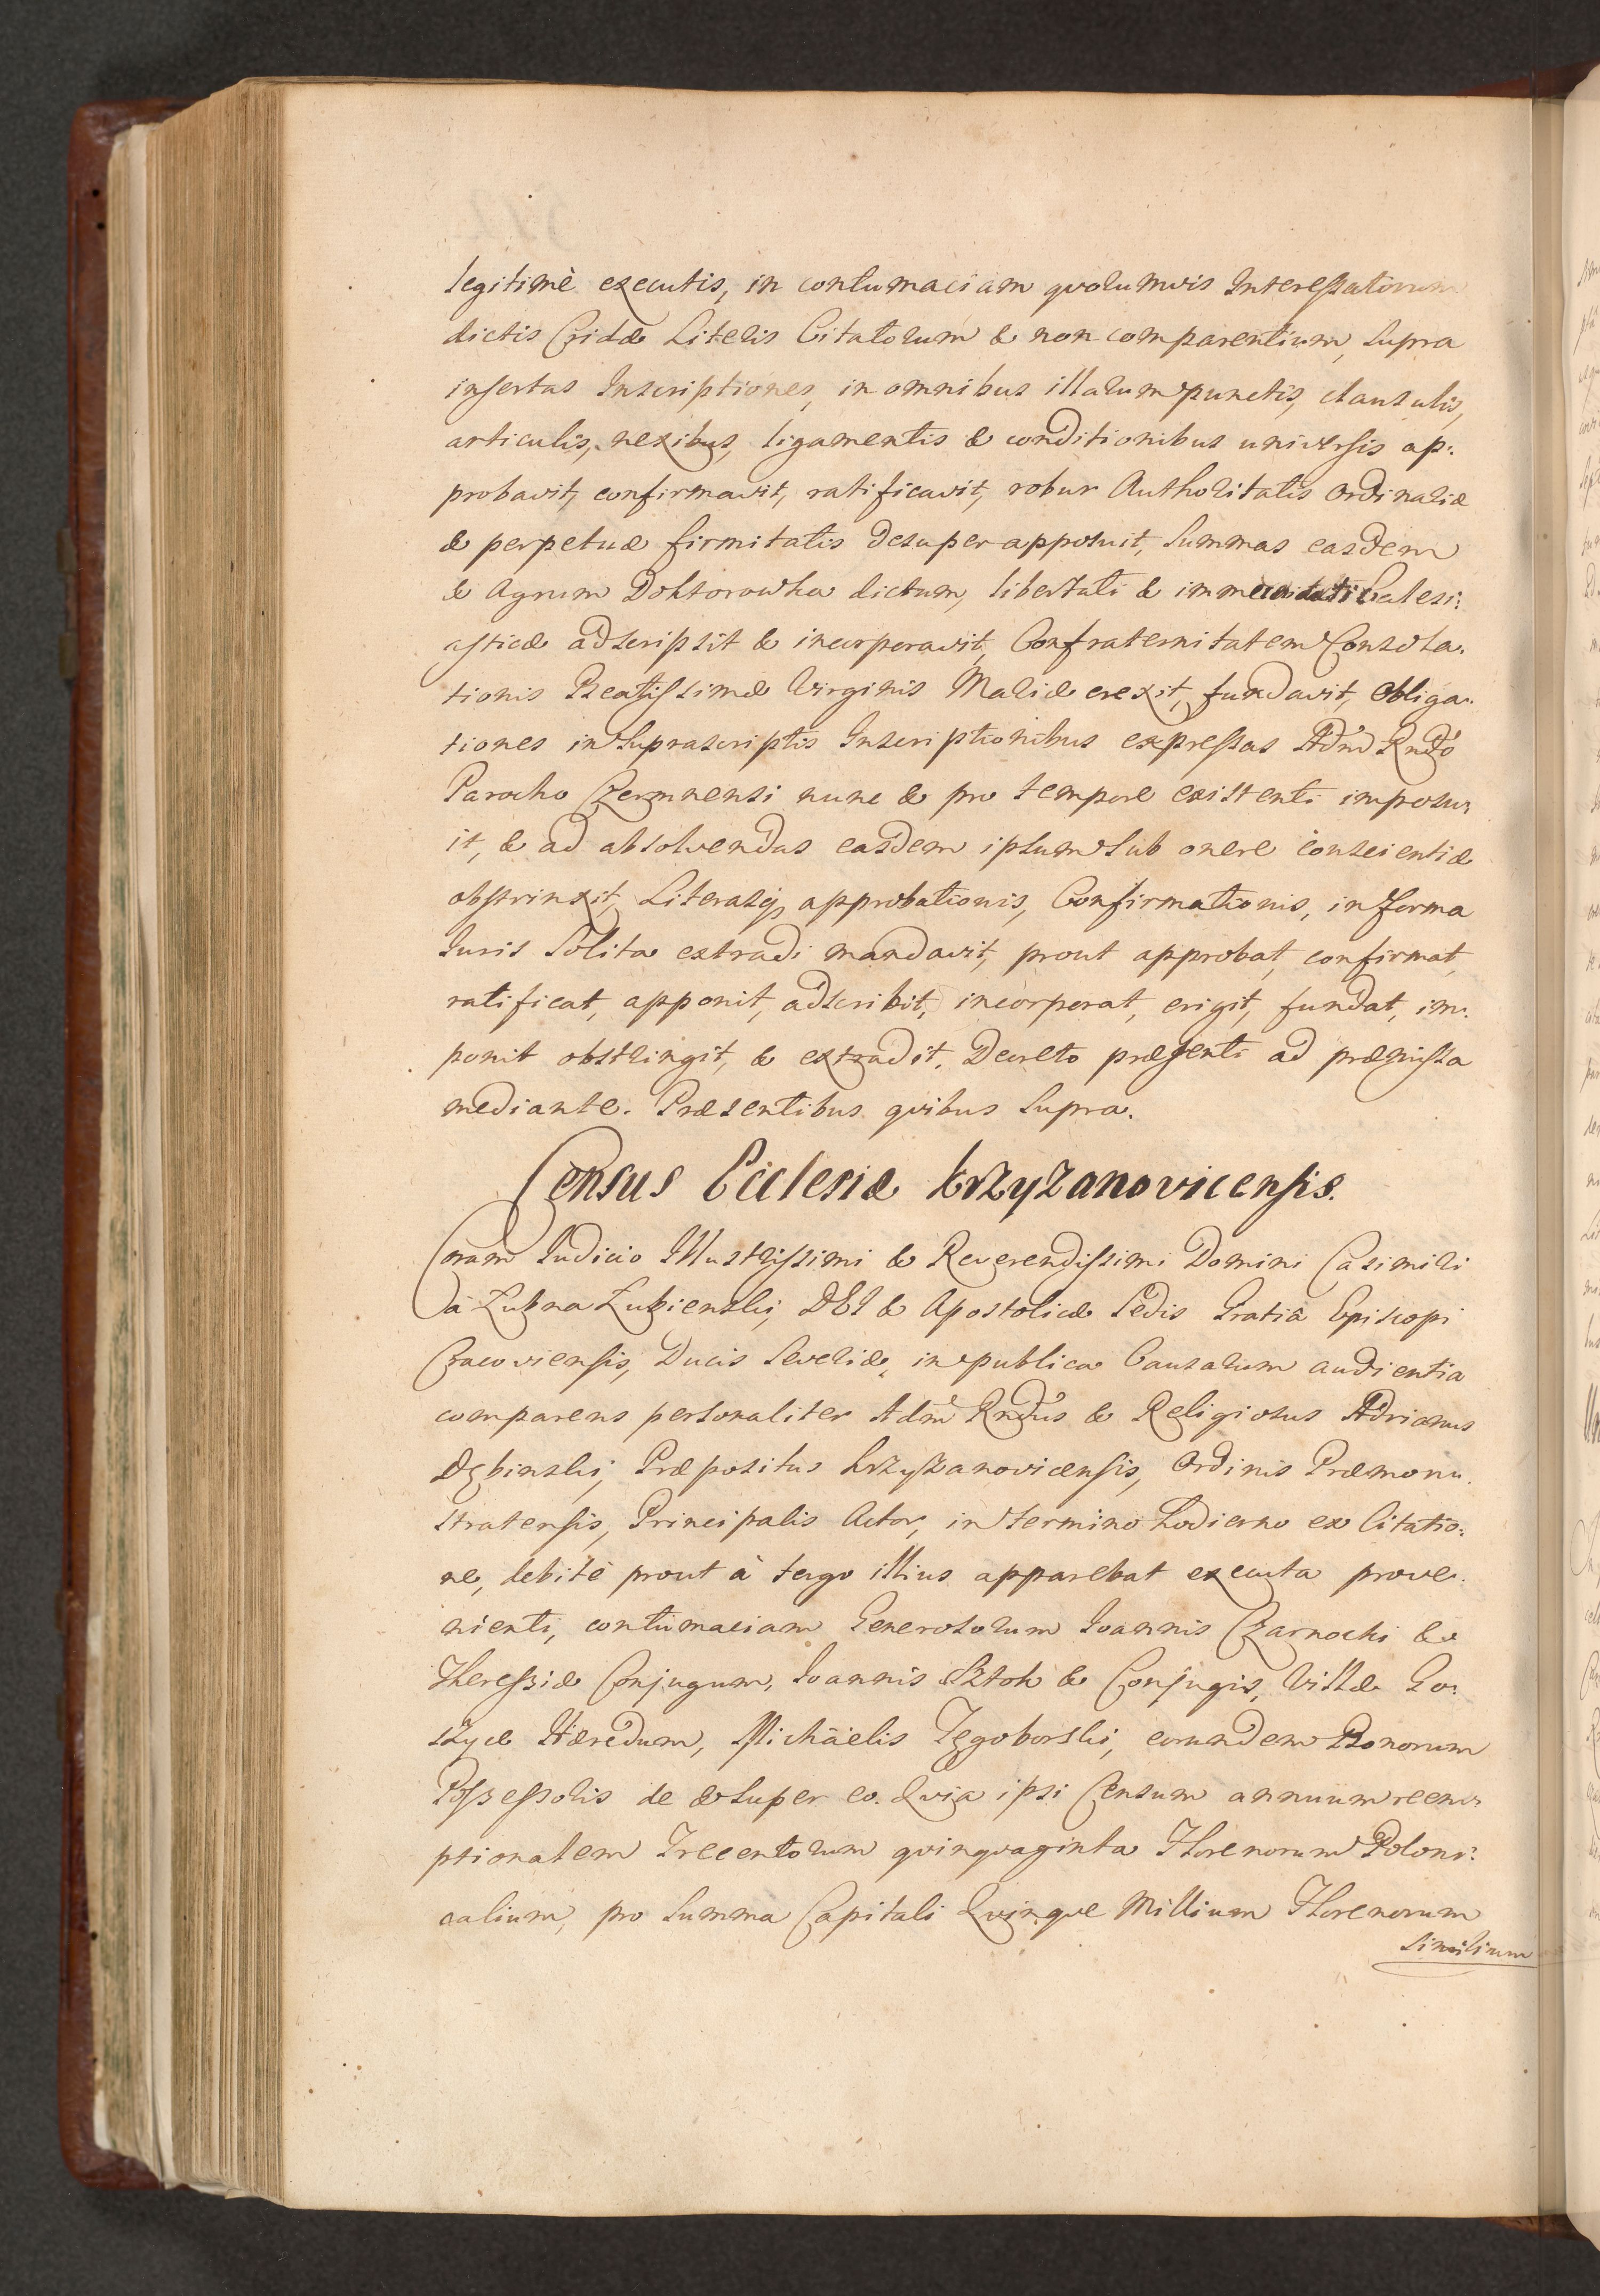 legitimè executis, in contumaciam qvorumvis Interessatorum
dictis Cridæ Literis Citatorum & non comparentium, supra
insertas Inscriptiones, in omnibus illarum punctis, clausulis,
articulis, nexibus, ligamentis & conditionibus universis ap:
probavit, confirmavit, ratificavit, robur Authoritatis Ordinariæ
& perpetuæ firmitatis desuper apposuit, Summas easdem
& Agrum Doktorowka dictum, libertati & immunitati Ecclesi:
asticæ adscripsit & incorporavit, Confraternitatem Consola:
tionis Beatissimæ Virginis Mariæ erexit, fundavit, Obliga:
tiones in suprascriptis Inscriptionibus expressas Adm̃ Rndo
Parocho Czermnensi nunc & pro tempore existenti imposu:
it, & ad absolvendas easdem ipsum sub onere conscientiæ
obstrinxit, Literasq; approbationis, Confirmationis, in forma
Iuris Solita extradi mandavit, prout approbat, confirmat,
ratificat, apponit, adscribit, incorporat, erigit, fundat, im:
ponit obstringit, & extradit. Decreto præsenti ad præmissa
mediante. Præsentibus qvibus supra.
Census Ecclesiæ Krzyzanovicensis.
Coram Iudicio Illustrissimi & Reverendissimi Domini Casimiri
à Lubna Lubienski, DEI & Apostolicæ Sedis Gratiâ Episcopi
Cracoviensis, Ducis Severiæ, in publica Causarum audientia
comparens personaliter Adm̃ Rndus & Religiosus Adrianus
Dębinski, Præpositus Krzyzanovicensis, Ordinis Præmon:
stratensis, Principalis Actor, in termino hodierno ex Citatio:
ne, debitè prout à tergo illius apparebat executa prove:
nienti, contumaciam Generosorum Ioannis Czarnocki &
Theressiæ Conjugum, Ioannis Sztok & Conjugis, Villæ Go:
szyce Hæredum, Michäelis Zęgoborski, eorundem Bonorum
Possessoris de & super eo. Qvia ipsi Censum annuum reem:
ptionalem Trecentorum qvinqvaginta Florenorum Poloni:
calium, pro Summa Capitali Qvinqve Millium Florenorum
similium